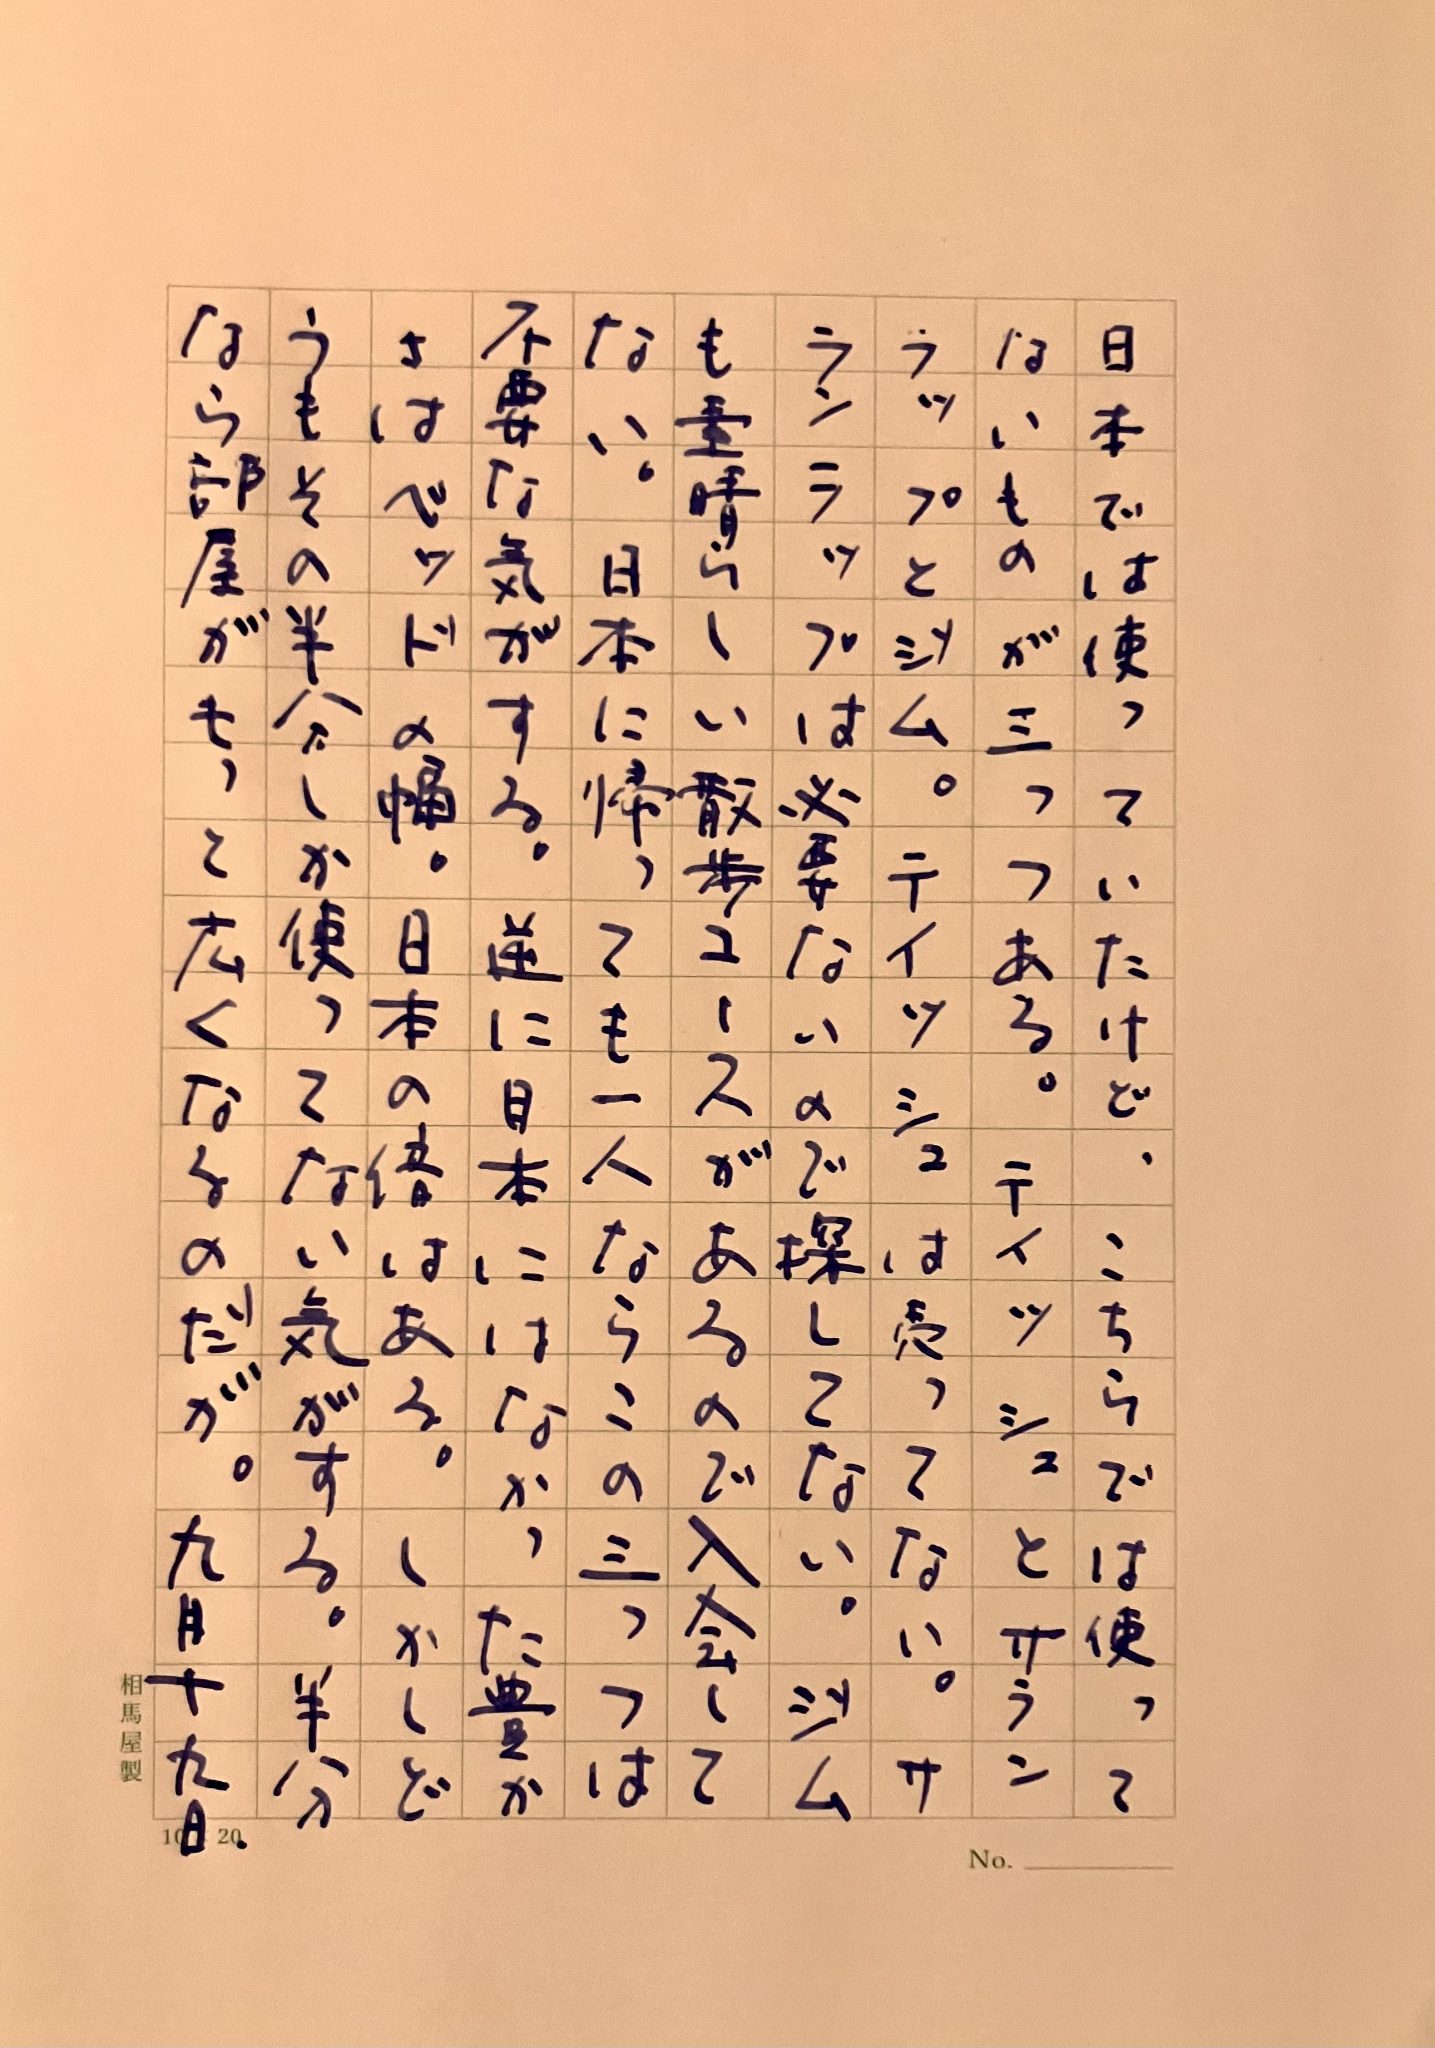 日本では使っていたけど、こちらでは使って
ないものが三つある。ティッシュとサラン
ラップとジム。ティッシュは売ってない。サ
ランラップは必要ないので探してない。ジム
も素晴らしい散歩コースがあるので入会して
ない。日本に帰っても一人ならこの三つは
不要な気がする。逆に日本にはなかった豊か
さはベッドの幅。日本の倍はある。しかしど
うもその半分しか使ってない気がする。半分
なら部屋がもっと広くなるのだが。九月十九日.
相馬屋製
10 20
No.